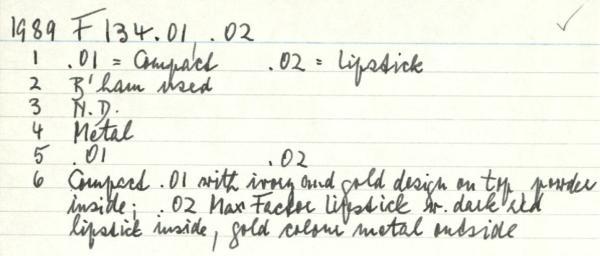 1989 F 134.01, .02
1 .01 = Compact .02 = Lipstick
2 B'ham used
3 N.D.
4 Metal
5 .01 .02
6 Compact .01 with ivory and gold design on top powder
inside; .02 Max Factor lipstick w. dark red
lipstick inside, gold colour metal outside